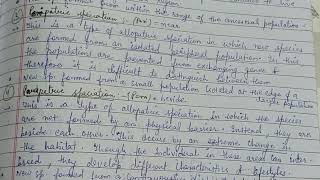 formed from within the range of the ancestral population
③ Peripatric speciation: (Peri) = near
This is a type of allopatric speciation in which new species
are formed from an isolated peripheral population. In this
the populations are prevented from exchanging genes &
therefore it is difficult to distinguish between them.
New sp. formed from a small population located at the edge of a
large population
④ Parapatric speciation: (Para) = beside
This is a type of allopatric speciation in which the species
are not formed by any physical barrier. Instead, they are
beside each other. This occurs by an extreme change in
the habitat. Though the individual in these areas can inter-
breed, they develop different characteristics & lifestyles.
New sp. formed from a